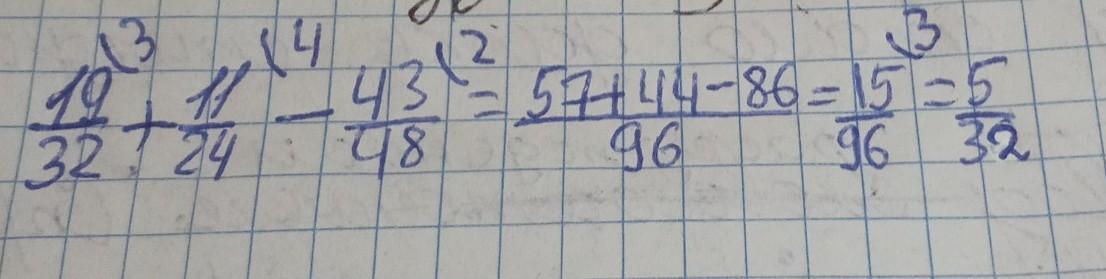 19/32\3 + 11/24\4 - 43/48\2 = 57+44-86/96 = 15/96\3 = 5/32